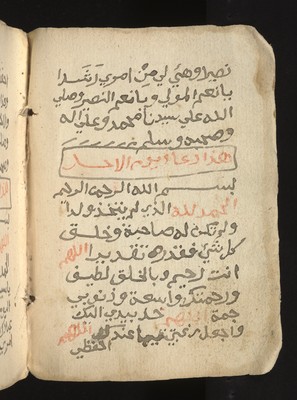 نصيرا وهئي لي من اموري رشدا
يا نعم المولي ويا نعم النصير وصلي
الله علي سيدنا محمد وعلي اله
وصحبه وسلم
هذا دعاء يوم الاحد
بسم الله الرحمن الرحيم
الحمد لله الذي لم يتخذ ولدا
ولم تكن له صاحبة وخلق
كل شيء فقدره تقديرا اللهم
انت رحيم وبالخلق لطيف
ورحمتك واسعة وذنوبي
جمة اللهم خذ بيدي اليك
واجعل رغبتي فيما عندك اللهم